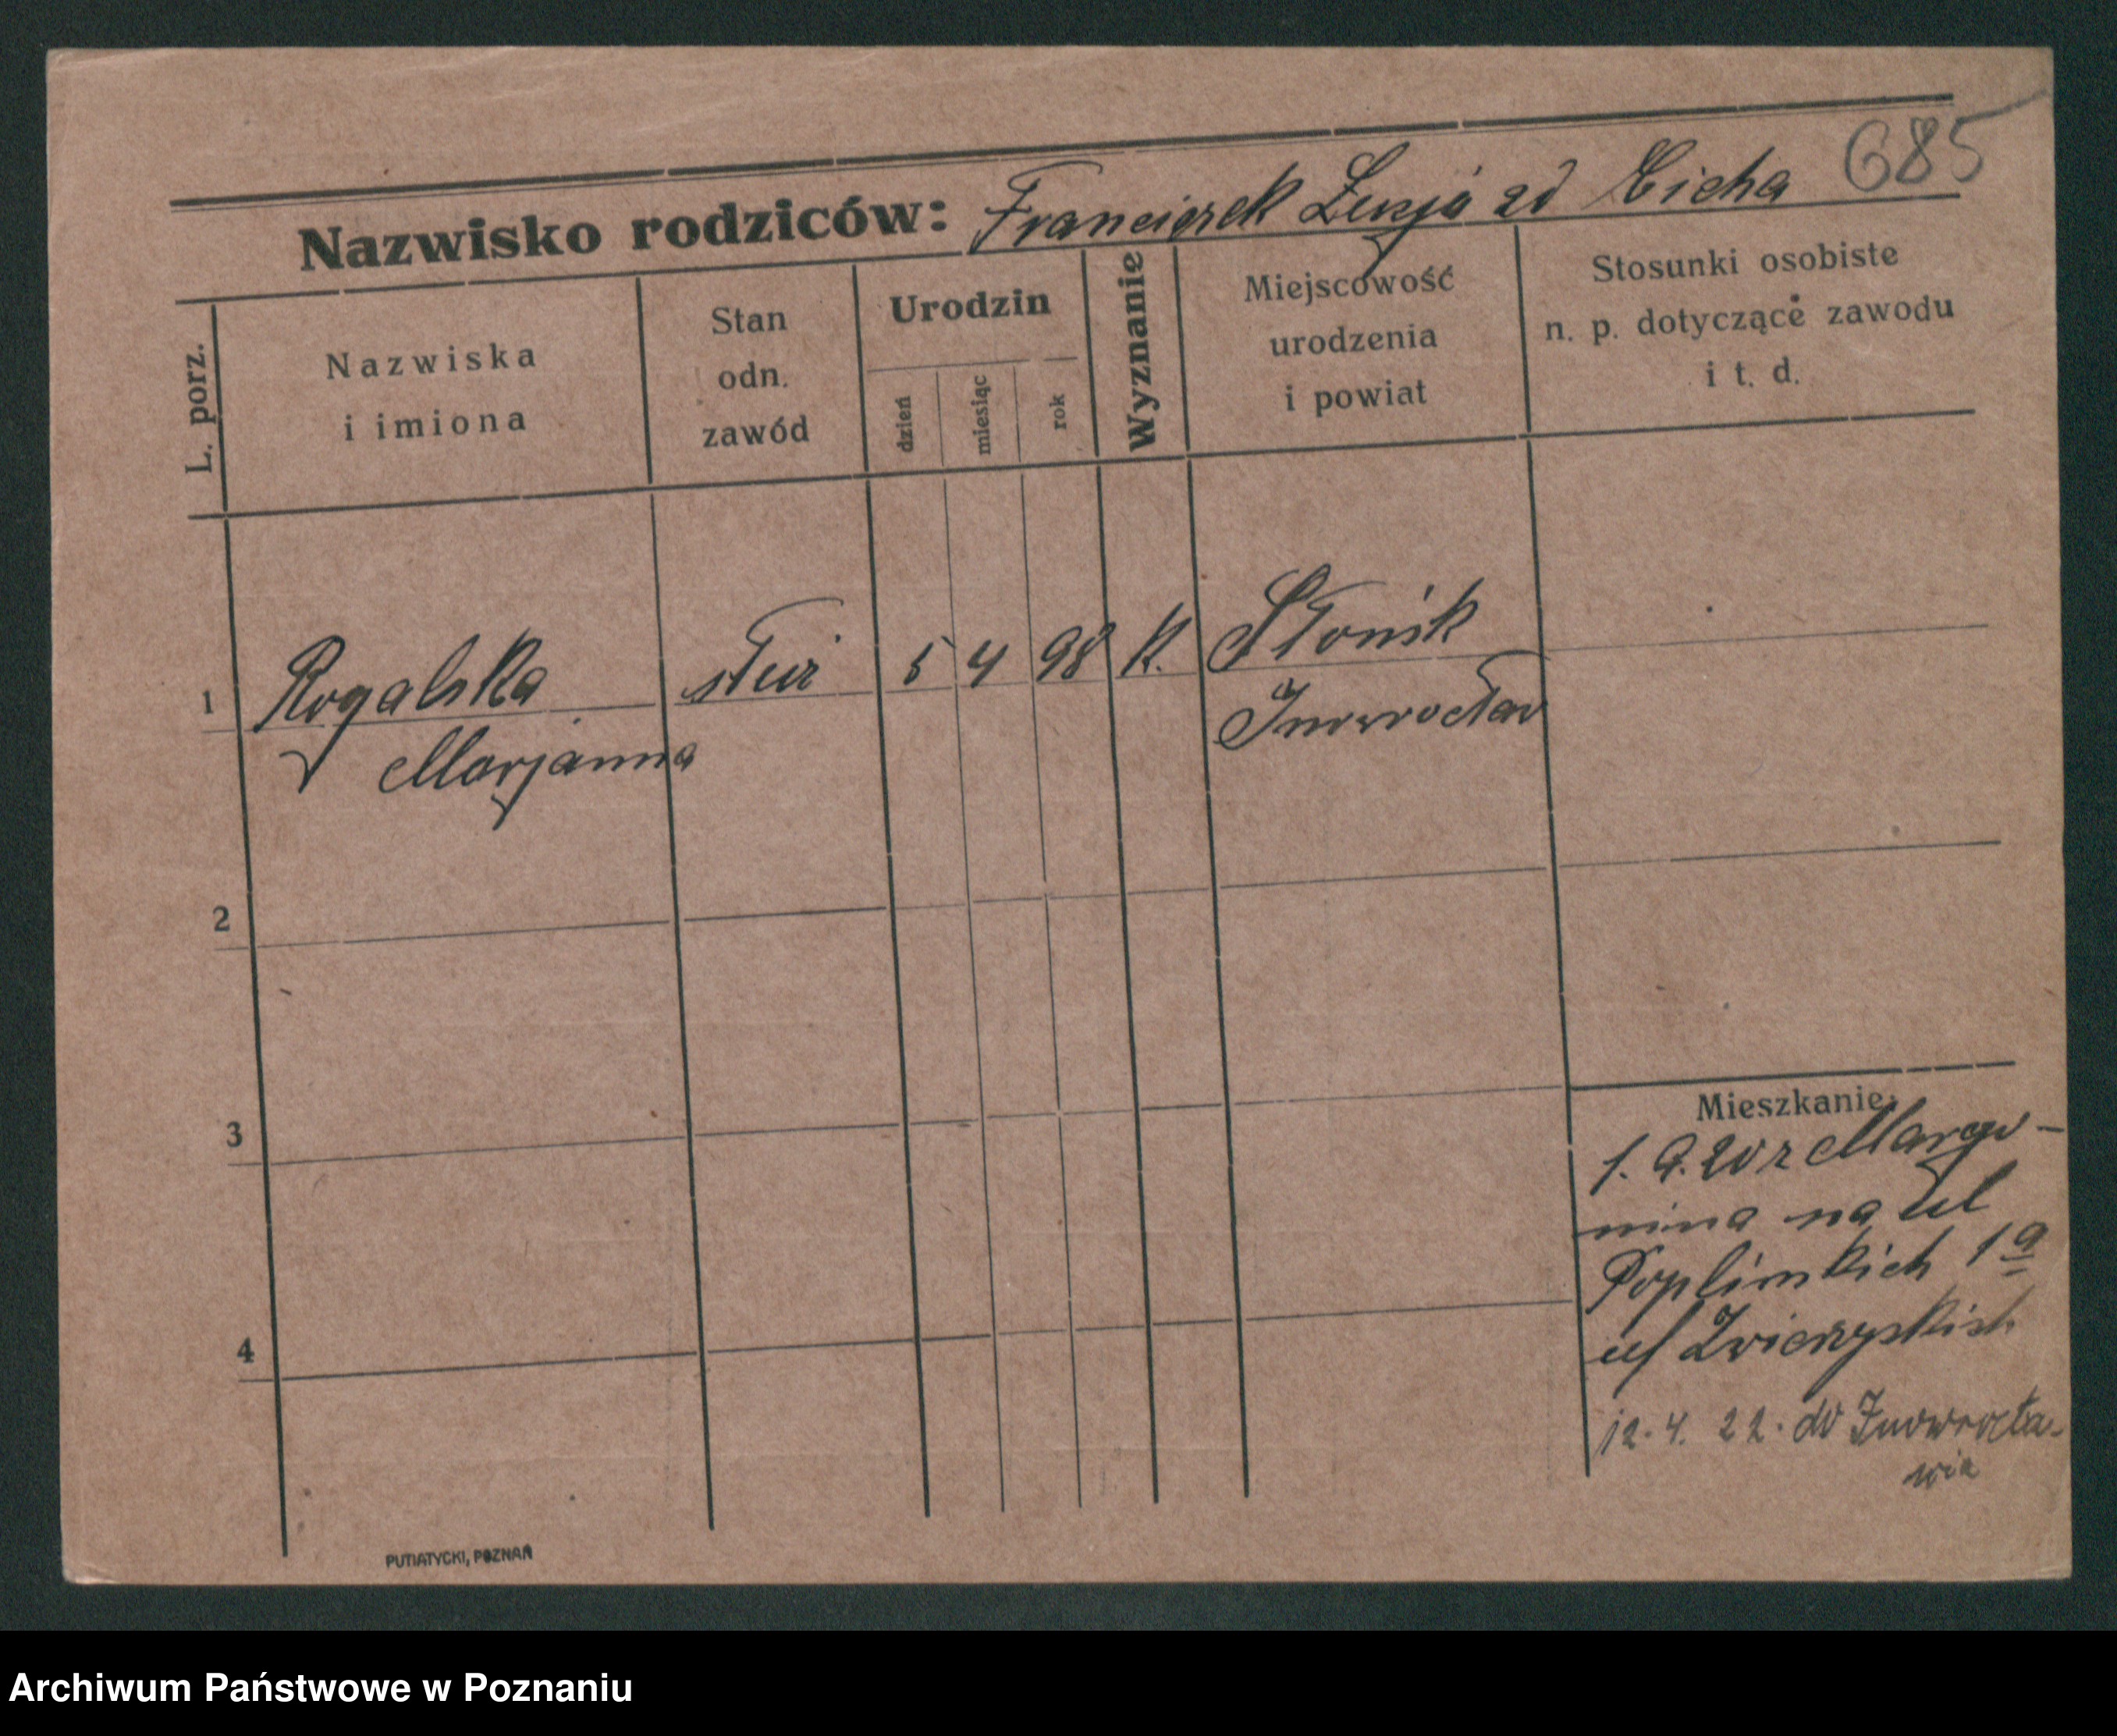 685
Nazwisko rodziców: Franciszek Luzja zd Cicha
L. porz.
Nazwiska
i imiona
Stan
odn.
zawód
Urodzin
dzień
miesiąc
rok
Wyznanie
Miejscowość
urodzenia
i powiat
Stosunki osobiste
n. p. dotyczące zawodu
i t. d.
1 Rogalska służ 5 4 98 K. Słońsk
Marjanna Inowrocław
2
3
4
Mieszkanie:
1. 9. 20 z Margo-
nina na ul
Poplińskich 1a
u/
12. 4. 22. do Inowrocła-
wia
PUTIATYCKI, POZNAŃ
Archiwum Państwowe w Poznaniu